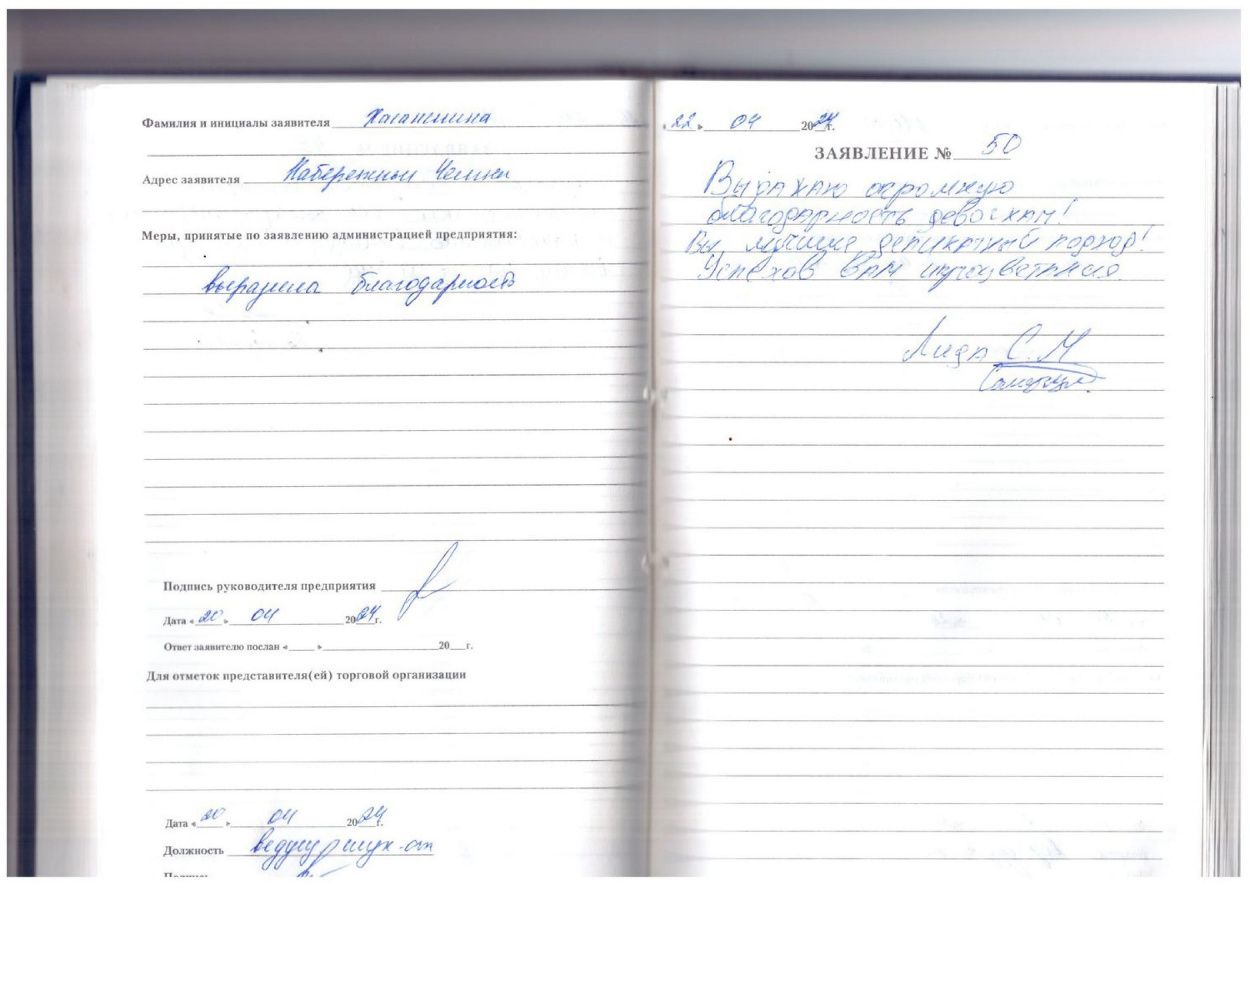 Фамилия и инициалы заявителя
Адрес заявителя Набережные Челны
Меры, принятые по заявлению администрацией предприятия:
выразила благодарность
Подпись руководителя предприятия
Дата «20» 04 2024г.
Ответ заявителю послан «___» ___ 20__г.
Для отметок представителя(ей) торговой организации
Дата «20» 04 2024г.
Должность
Подпись
«22» 04 2024г.
ЗАЯВЛЕНИЕ № 50
Выражаю огромную
благодарность девочкам!
Вы лучшие деликатный подход!
Успехов Вам и процветания.
Лида С.М